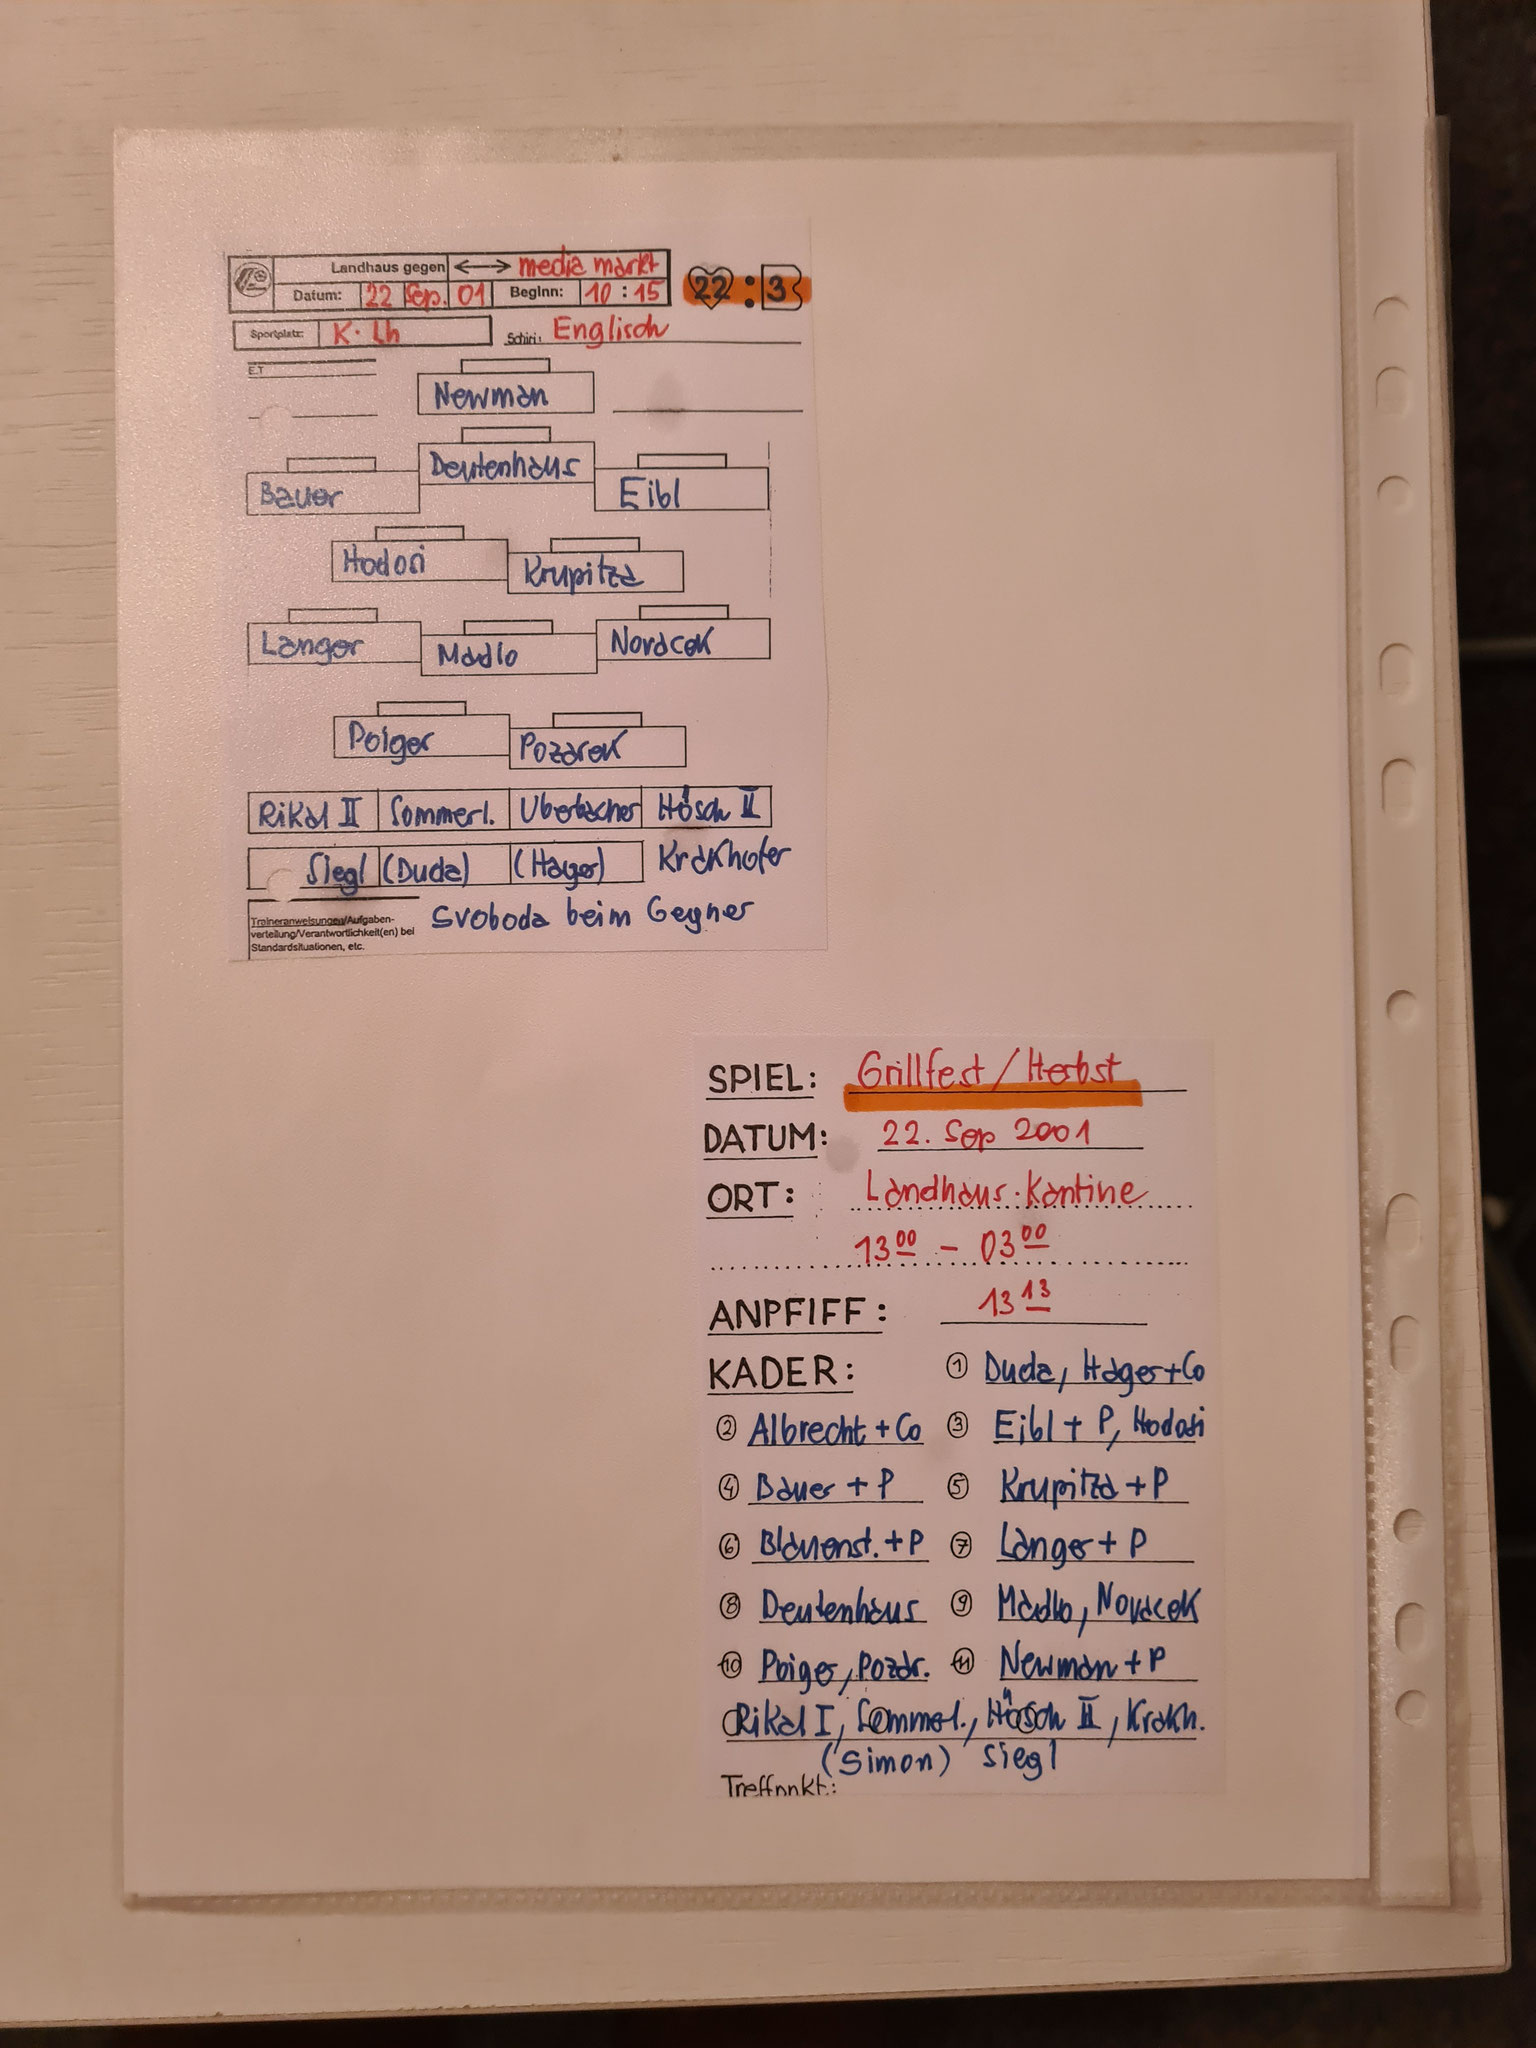 Landhaus gegen ↔ media markt
Datum: 22 Sep. 01 Beginn: 10 : 15 22 : 3
Sportplatz: K. Lh Schiri: Englisch
E.T
Newman
Deutenhaus
Bauer Eibl
Hodosi Krupitza
Langer Madlo Novacek
Poiger Pozarek
Rikal II Sommerl. Uberbacher Hösch II
Siegl (Duda) (Hager) Krakhofer
Svoboda beim Gegner
Traineranweisungen/Aufgaben-
verteilung/Verantwortlichkeit(en) bei
Standardsituationen, etc.
SPIEL: Grillfest / Herbst
DATUM: 22. Sep 2001
ORT: Landhaus-Kantine
13 00 - 03 00
ANPFIFF: 13 13
KADER: 1 Duda, Hager + Co
2 Albrecht + Co 3 Eibl + P, Hodosi
4 Bauer + P 5 Krupitza + P
6 Blauenst. + P 7 Langer + P
8 Deutenhaus 9 Madlo, Novacek
10 Poiger, Pozar. 11 Newman + P
Rikal I, Sommerl., Hösch II, Krakh.
(Simon) Siegl
Treffpnkt.: